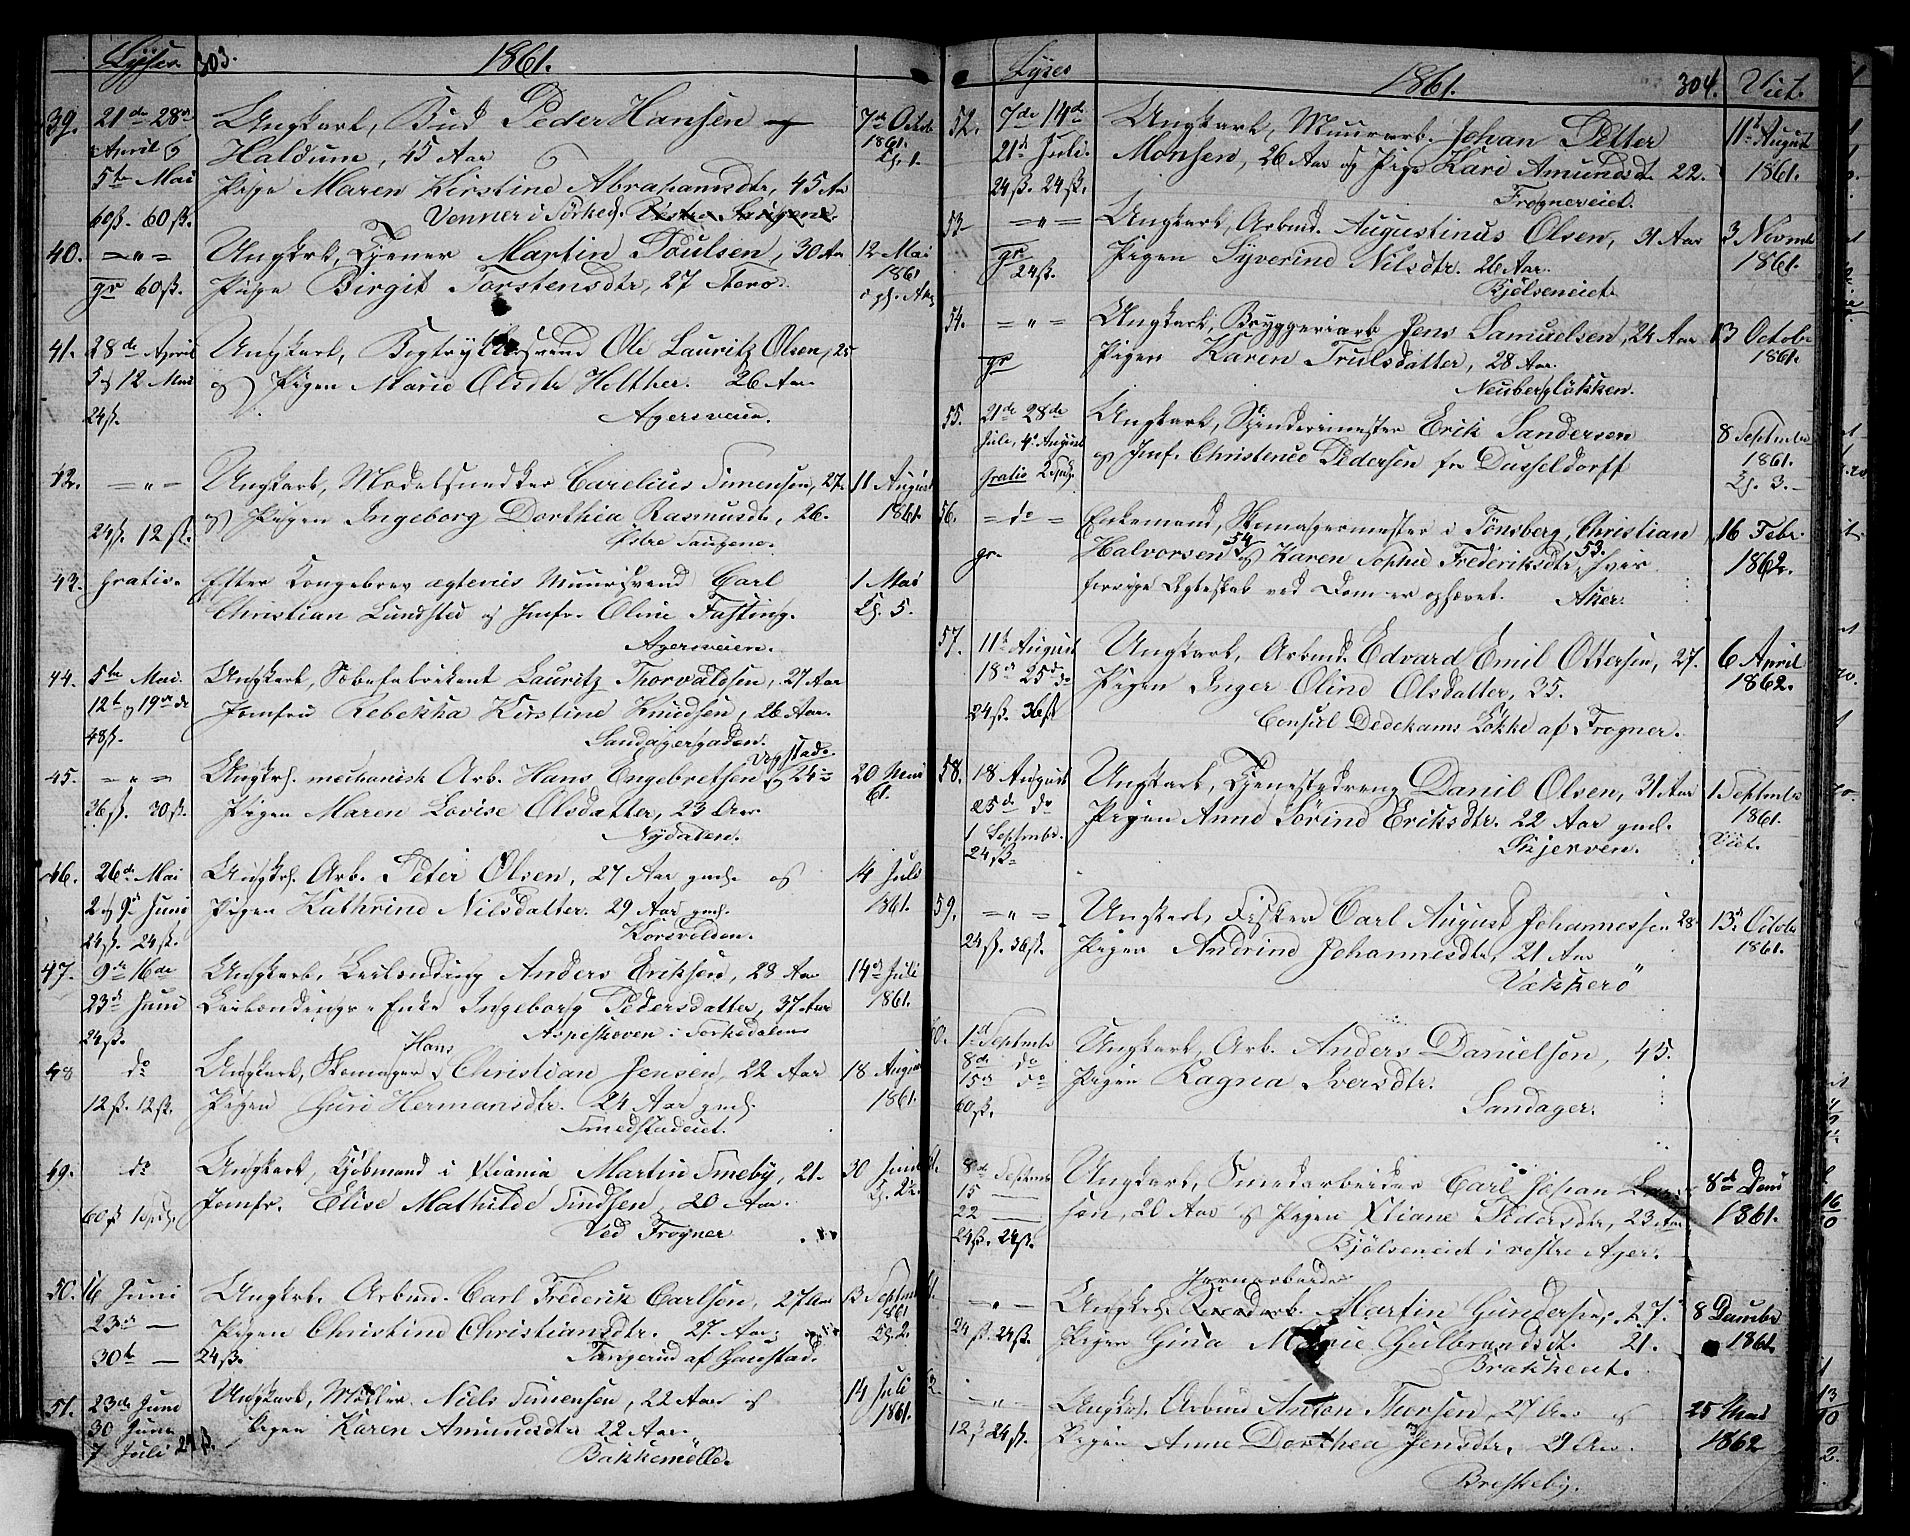 Lyser 303. 1861.
39. 21de 28de Ungkarl, Bud Peder Hansen 7de Octobr
April og Haldum, 45 Aar 1861.
5te Mai Pige Maren Kirstine Abrahamsdtr, 45 Aar
60ß. 60ß. Venner i Sörked. Vestre Saugene.
40. =„= Ungkrl, Tjener Martin Poulsen, 30 Aar 12 Mai
gr 60ß. Pige Birgit Torstensdtr, 27 1861
41. 28de April Ungkarl, Bogtrykkersvend Ole Lauritz Olsen, 25
5 og 12 Mai og Pigen Marie Olsdtr Holther. 26 Aar
24ß. Agersveien.
42. =„= Ungkarl, Modelsnedker Carelius Simensen, 27. 11 August
24ß. 12ß. og Pigen Ingeborg Dorthea Rasmusdtr, 26. 1861.
Östre Saugene.
43. Gratis. Efter Kongebrev ægtevies Muursvend Carl 1 Mai
Christian Lundsted og Jmfr. Oline Fasting. 5.
Agersveien.
44. 5te Mai Ungkarl, Sæbefabrikant Lauritz Thorvaldsen, 27 Aar
12te og 19de do Jomfru Rebekka Kirstine Knudsen, 26 Aar.
48ß. Sandagergaden.
45. =„= Ungkrl. mechanisk Arb. Hans Engebretsen og 24 20 Mai
36ß. 30ß. Pigen Maren Lovise Olsdatter, 23 Aar 61.
Nydalen.
46. 26de Mai Ungkrl. Arb. Peter Olsen, 27 Aar gml. og 14 Juli
2 og 9de Juni Pigen Kathrine Nilsdatter. 29 Aar gml. 1861.
24ß. 24ß. Korsvolden.
47. 9de 16de Ungkarl, Leilænding Anders Eriksen, 28 Aar 14de Juli
23de Juni Leilændings-Enke Ingeborg Pedersdatter, 37 Aar 1861.
24ß. Aspeskoven i Sorkedalen
48 do Ungkarl, Skomager Hans Christian Jensen, 22 Aar 18 August
12ß. 12ß. Pigen Guri Hermansdtr. 24 Aar gml. 1861.
Smedstadeiet.
49. do Ungkarl, Kjöbmand i Xtiania Martin Smeby, 21. 30 Juni
60ß Jomfr. Elise Mathilde Sindsen, 20 Aar.
Ved Frogner
50. 16 Juni Ungkrl. Arbmd. Carl Frederik Carlsen, 27 Aar 13 Septmb
23de — Pigen Christine Christiansdtr. 27 Aar 1861
30te — 24ß. Tangerud af Haustad.
51. 23de Juni Ungkarl, Möller Niels Simensen, 22 Aar og 14 Juli
30 Juni Pigen Karen Amundsdtr 22 Aar. 1861.
7 Juli 24ß. Bakkemölle.
Lyser 1861. 304. Viet.
52. 7de 14de Ungkarl, Muurarb. Johan Petter 11te August
21de Juli Monsen, 26 Aar og Pige Kari Amundsdt. 22. 1861.
24ß. 24ß. Frogneveiet.
53 =„= Ungkarl, Arbmd. Augustinus Olsen, 31 Aar 3 Novmb
gr 24ß. Pigen Syverine Nilsdtr. 26 Aar. 1861.
Bjölseneiet.
54. =„= Ungkarl, Bryggeriarb Jens Samuelsen, 24 Aar 13 Octobr
gr Pigen Karen Trulsdatter, 28 Aar. 1861.
Neuberglökken.
55. 21de 28de Ungkarl, Spinderimester Erik Sandersen 8 Septmbr
Juli, 4de August og Jmf. Christence Pedersen fra Dusseldorff 1861.
Gratis 3.
56. = do = Enkemand, Skomagermester i Tönsberg, Christian 16 Febr.
gr. Halvorsen 54 og Karen Sophie Frederiksdtr, 53. hvis 1862.
forrige Ægteskab ved Dom er ophævet. Aker.
57. 11te August Ungkarl, Arbmd. Edvard Emil Ottersen, 27. 6 April
18de 25de do Pigen Inger Oline Olsdatter, 35. 1862.
24ß. 36ß Consul Dedekams Lökke af Frogner.
58. 18 August Ungkarl, Tjenestedreng Danil Olsen, 31 Aar 1 Septmbr
25de do Pigen Anne Sörine Eriksdtr. 22 Aar gml. 1861.
1 Septmbr. Skjerven. Viet.
24ß
59. =„= Ungkarl, Fisker Carl August Johannessen 28 13de Octobr
24ß. 36ß. Pigen Andrine Johannesdtr, 21 Aar 1861.
Vækkerö
60. 1ste Septmbr Ungkarl, Arb. Anders Danielsen, 45.
8de do Pigen Ragna Iversdtr.
15de do Sandager.
60ß.
8de Septmbr Ungkarl, Smedarbeider Carl Johan 8de Decm
15 — sen, 20 Aar og Pigen Xtiane Pedersdtr, 23 Aar 1861.
22 — Bjölseneiet i vestre Ager.
24ß. 24ß.
Jernarbeider
—„— Ungkrl. Martin Gundersen, 27. 8 Decmbr
24ß. 24ß. Pigen Gina Marie Gulbrandsdt. 21. 1861.
Brakkeiet.
—„— Ungkrl. Arbmd Anton Thorsen, 27 Aar og 25 Mai
12ß 24ß. Pigen Anne Dorthea Jensdtr, Aar. 1862
Breskeby.